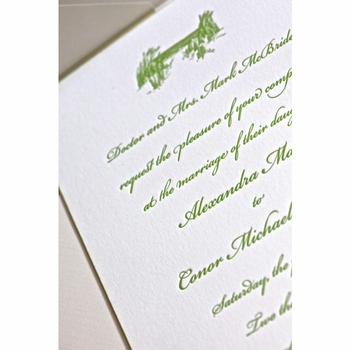 Doctor and Mrs. Mark McBride
request the pleasure of your
at the marriage of their
Alexandra
to
Conor Michael
Saturday, the
Two